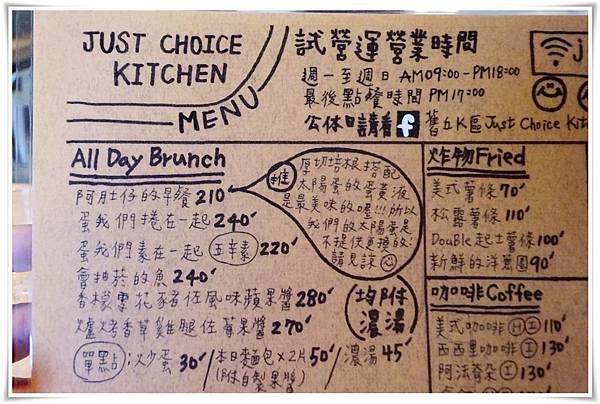 JUST CHOICE
KITCHEN
MENU
試營運營業時間
週一至週日 AM09:00-PM18:00
最後點餐時間 PM17:00
公休日請看 f 舊丘K區Just Choice Kit
j
All Day Brunch
阿肚仔的早餐 210
蛋我們捲在一起 240
蛋我們素在一起 五辛素 220
會抽菸的魚 240
香檬雪花豬佐風味蘋果醬 280
爐烤香草雞腿佐莓果醬 270
單點: 炒蛋 30 / 本日麵包x2片 50 / 濃湯 45
(附自製果醬)
推
厚切培根搭配
太陽蛋的蛋黃液
是最美味的喔!!!所以
我們的太陽蛋是
不提供更換的!
請見諒
均附
濃湯
炸物Fried
美式薯條 70
松露薯條 110
Double起士薯條 100
新鮮的洋蔥圈 90
咖啡Coffee
美式咖啡 H I 110
西西里咖啡 I 130
阿法奇朵 I 130